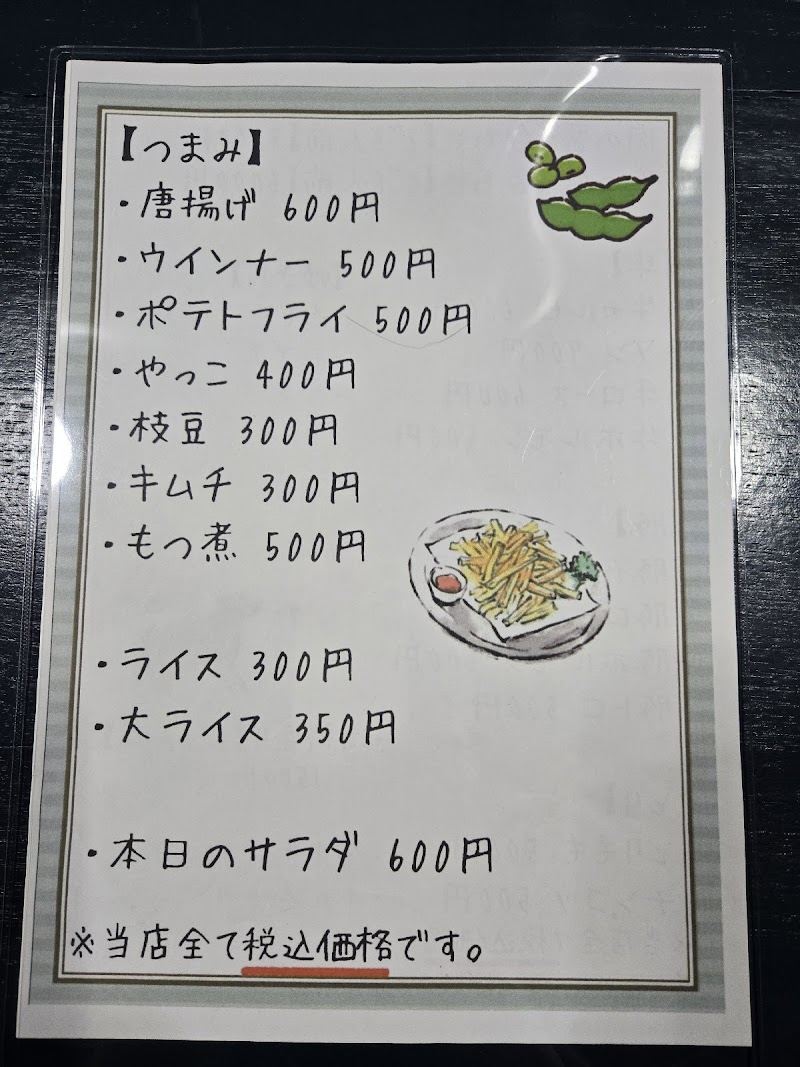 【つまみ】
・唐揚げ 600円
・ウインナー 500円
・ポテトフライ 500円
・やっこ 400円
・枝豆 300円
・キムチ 300円
・もつ煮 500円
・ライス 300円
・大ライス 350円
・本日のサラダ 600円
※当店全て税込価格です。